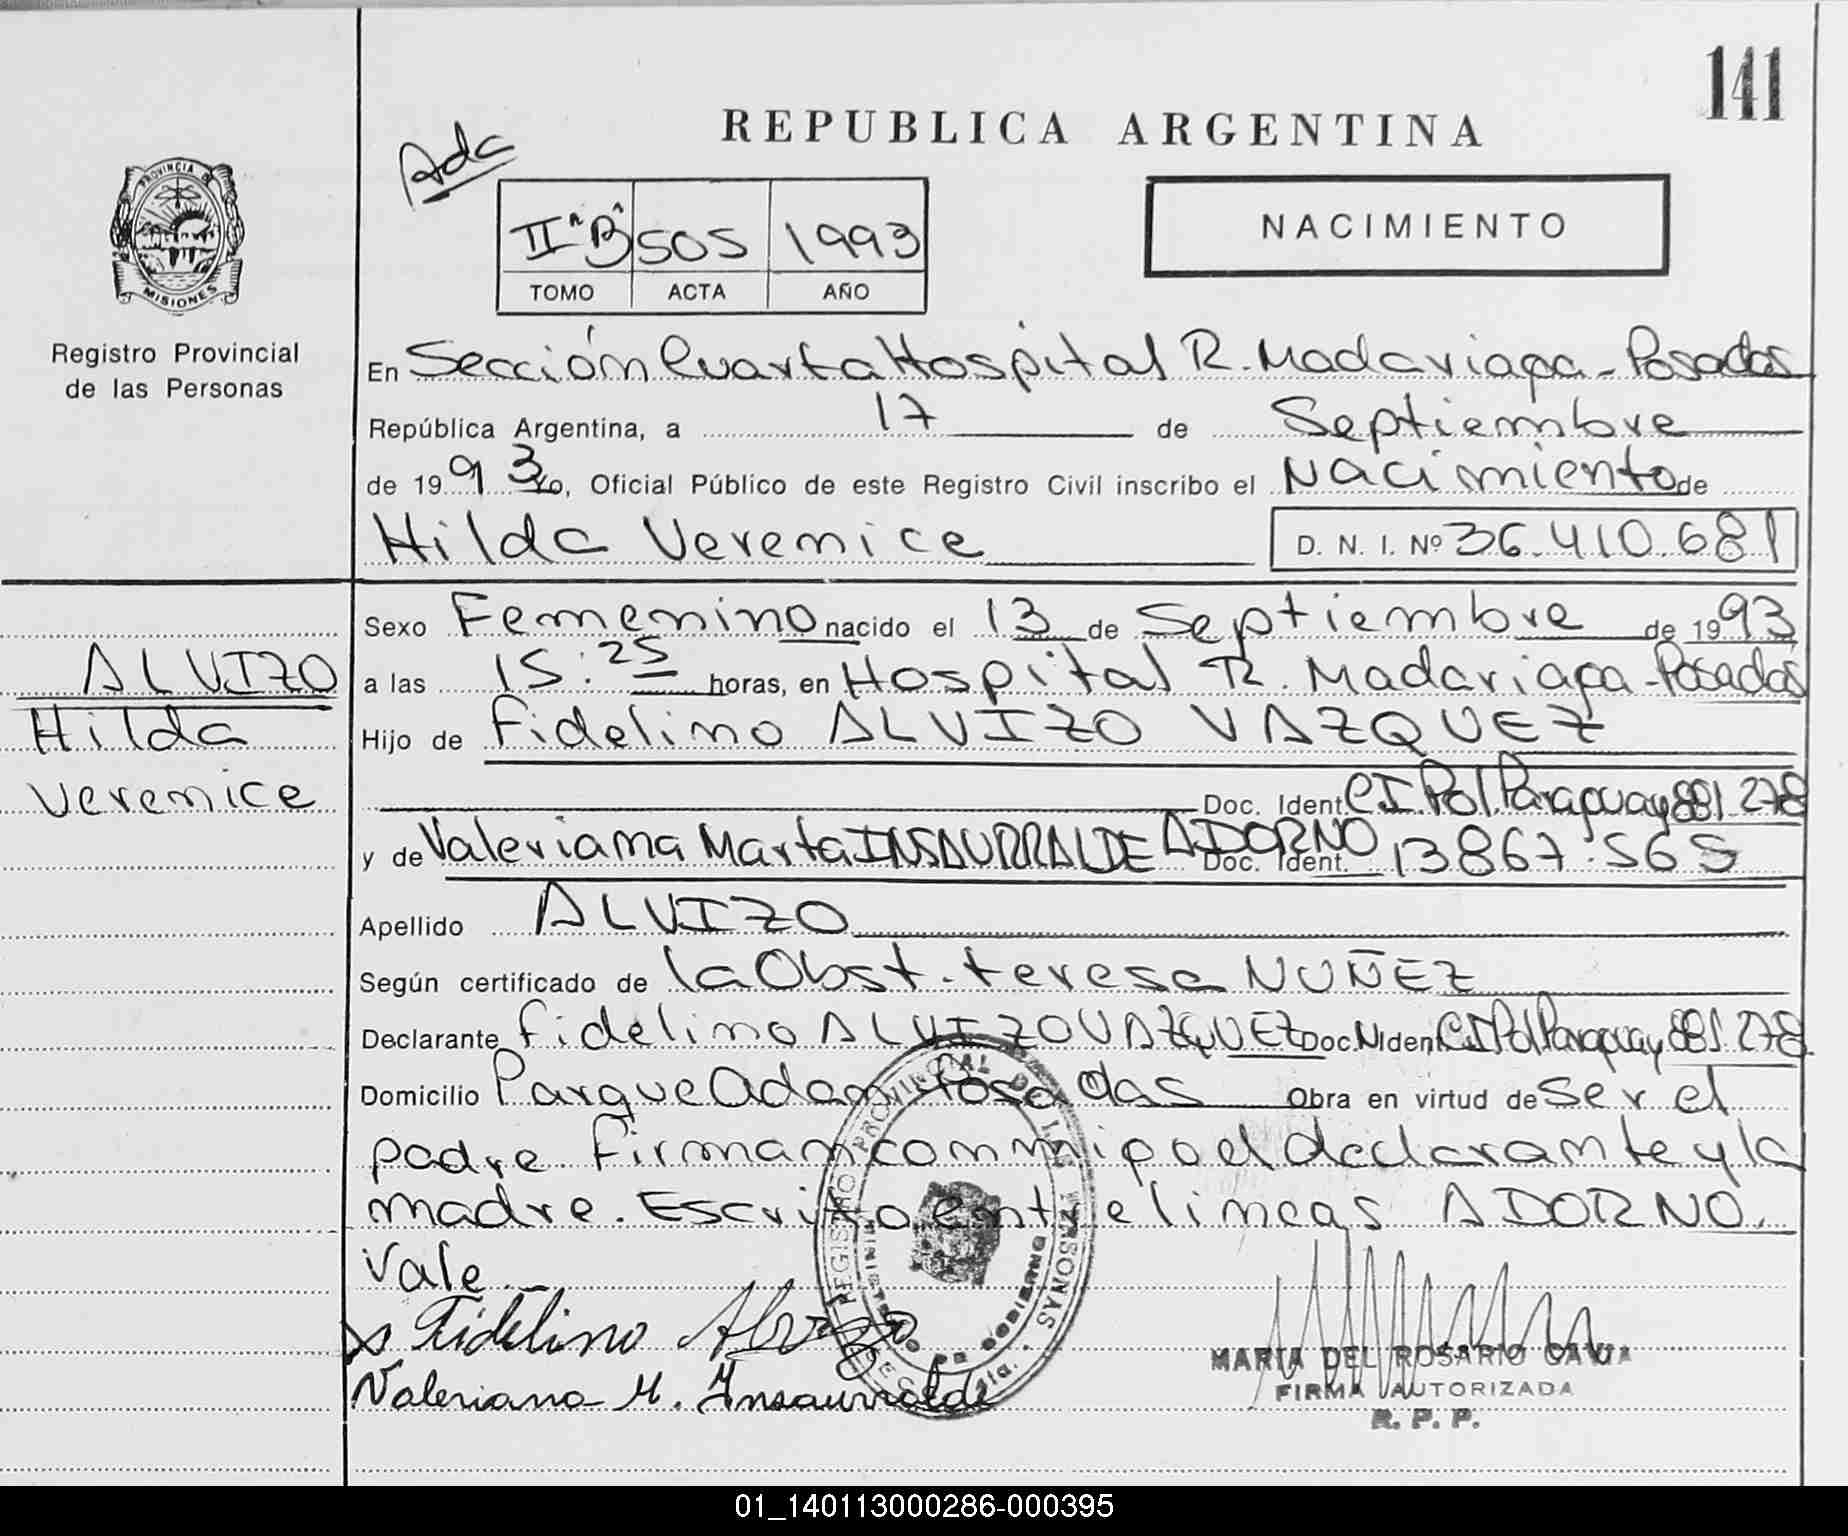 141
REPUBLICA ARGENTINA
Ada
PROVINCIA D
MISIONES
II"B" 505 1993
TOMO ACTA AÑO
NACIMIENTO
Registro Provincial
de las Personas
En Sección Cuarta Hospital R. Madariaga - Posadas
República Argentina, a 17 de Septiembre
de 1993 yo, Oficial Público de este Registro Civil inscribo el Nacimiento de
Hilda Verenice D. N. I. Nº 36.410.681
ALVIZO
Hilda
Verenice
Sexo Femenino nacido el 13 de Septiembre de 1993
a las 15:25 horas, en Hospital R. Madariaga - Posadas
Hijo de Fidelino ALVIZO VAZQUEZ
Doc. Ident. CI Pol Paraguay 881 278
y de Valeriana Marta INSAURRALDE ADORNO Doc. Ident. 13867.565
Apellido ALVIZO
Según certificado de la Obst. teresa NUÑEZ
Declarante Fidelino ALVIZO VAZQUEZ Doc. N Iden CI Pol Paraguay 881 278
Domicilio Parque Adam Posadas Obra en virtud de ser el
padre. Firman conmigo el declarante y la
madre. Escrito entre lineas ADORNO.
Vale
Fidelino Alvizo
Valeriana M. Insaurralde
REGISTRO PROVINCIAL DE LAS PERSONAS
MINISTERIO DE GOBIERNO
MARIA DEL ROSARIO GAVIA
FIRMA AUTORIZADA
R. P. P.
01_140113000286-000395